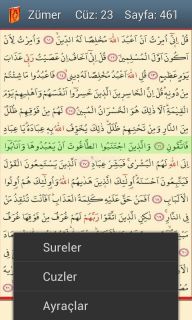 Zümer Cüz: 23 Sayfa: 461
قُلْ اِنّٖٓي اُمِرْتُ اَنْ اَعْبُدَ اللّٰهَ مُخْلِصًا لَهُ الدّٖينَ ﴿١١﴾ وَاُمِرْتُ لِاَنْ
اَكُونَ اَوَّلَ الْمُسْلِمٖينَ ﴿١٢﴾ قُلْ اِنّٖٓي اَخَافُ اِنْ عَصَيْتُ رَبّٖي عَذَابَ
يَوْمٍ عَظٖيمٍ ﴿١٣﴾ قُلِ اللّٰهَ اَعْبُدُ مُخْلِصًا لَهُ دٖينٖي ﴿١٤﴾ فَاعْبُدُوا مَا شِئْتُمْ
مِنْ دُونِهٖ قُلْ اِنَّ الْخَاسِرٖينَ الَّذٖينَ خَسِرُٓوا اَنْفُسَهُمْ وَاَهْلٖيهِمْ يَوْمَ
الْقِيٰمَةِ اَلَا ذٰلِكَ هُوَ الْخُسْرَانُ الْمُبٖينُ ﴿١٥﴾ لَهُمْ مِنْ فَوْقِهِمْ ظُلَلٌ
مِنَ النَّارِ وَمِنْ تَحْتِهِمْ ظُلَلٌ ذٰلِكَ يُخَوِّفُ اللّٰهُ بِهٖ عِبَادَهُ يَا عِبَادِ
فَاتَّقُونِ ﴿١٦﴾ وَالَّذٖينَ اجْتَنَبُوا الطَّاغُوتَ اَنْ يَعْبُدُوهَا وَاَنَابُٓوا
اِلَى اللّٰهِ لَهُمُ الْبُشْرٰى فَبَشِّرْ عِبَادِ ﴿١٧﴾ اَلَّذٖينَ يَسْتَمِعُونَ الْقَوْلَ
فَيَتَّبِعُونَ اَحْسَنَهُ اُولٰٓئِكَ الَّذٖينَ هَدٰيهُمُ اللّٰهُ وَاُولٰٓئِكَ هُمْ اُولُوا
الْاَلْبَابِ ﴿١٨﴾ اَفَمَنْ حَقَّ عَلَيْهِ كَلِمَةُ الْعَذَابِ اَفَاَنْتَ تُنْقِذُ مَنْ
فِي النَّارِ ﴿١٩﴾ لٰكِنِ الَّذٖينَ اتَّقَوْا رَبَّهُمْ لَهُمْ غُرَفٌ مِنْ فَوْقِهَا غُرَفٌ
Sureler
Cuzler
Ayraçlar